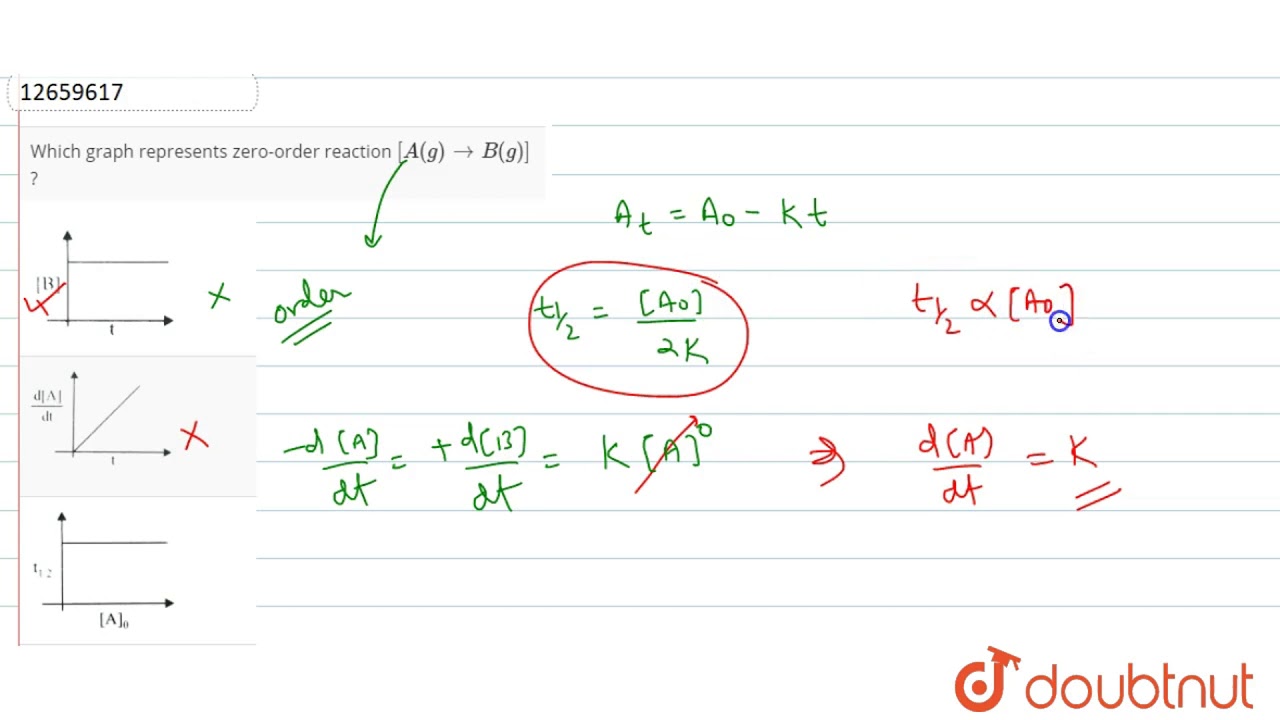 12659617
Which graph represents zero-order reaction [A(g) → B(g)]
?
A_t = A_0 - Kt
[B]
t
×
order
t_{1/2} = [A_0] / 2K
t_{1/2} ∝ [A_0]
d[A] / dt
t
×
-d[A] / dt = +d[B] / dt = K[A]^0 ⇒ d[A] / dt = K
t_{1/2}
[A]_0
doubtnut